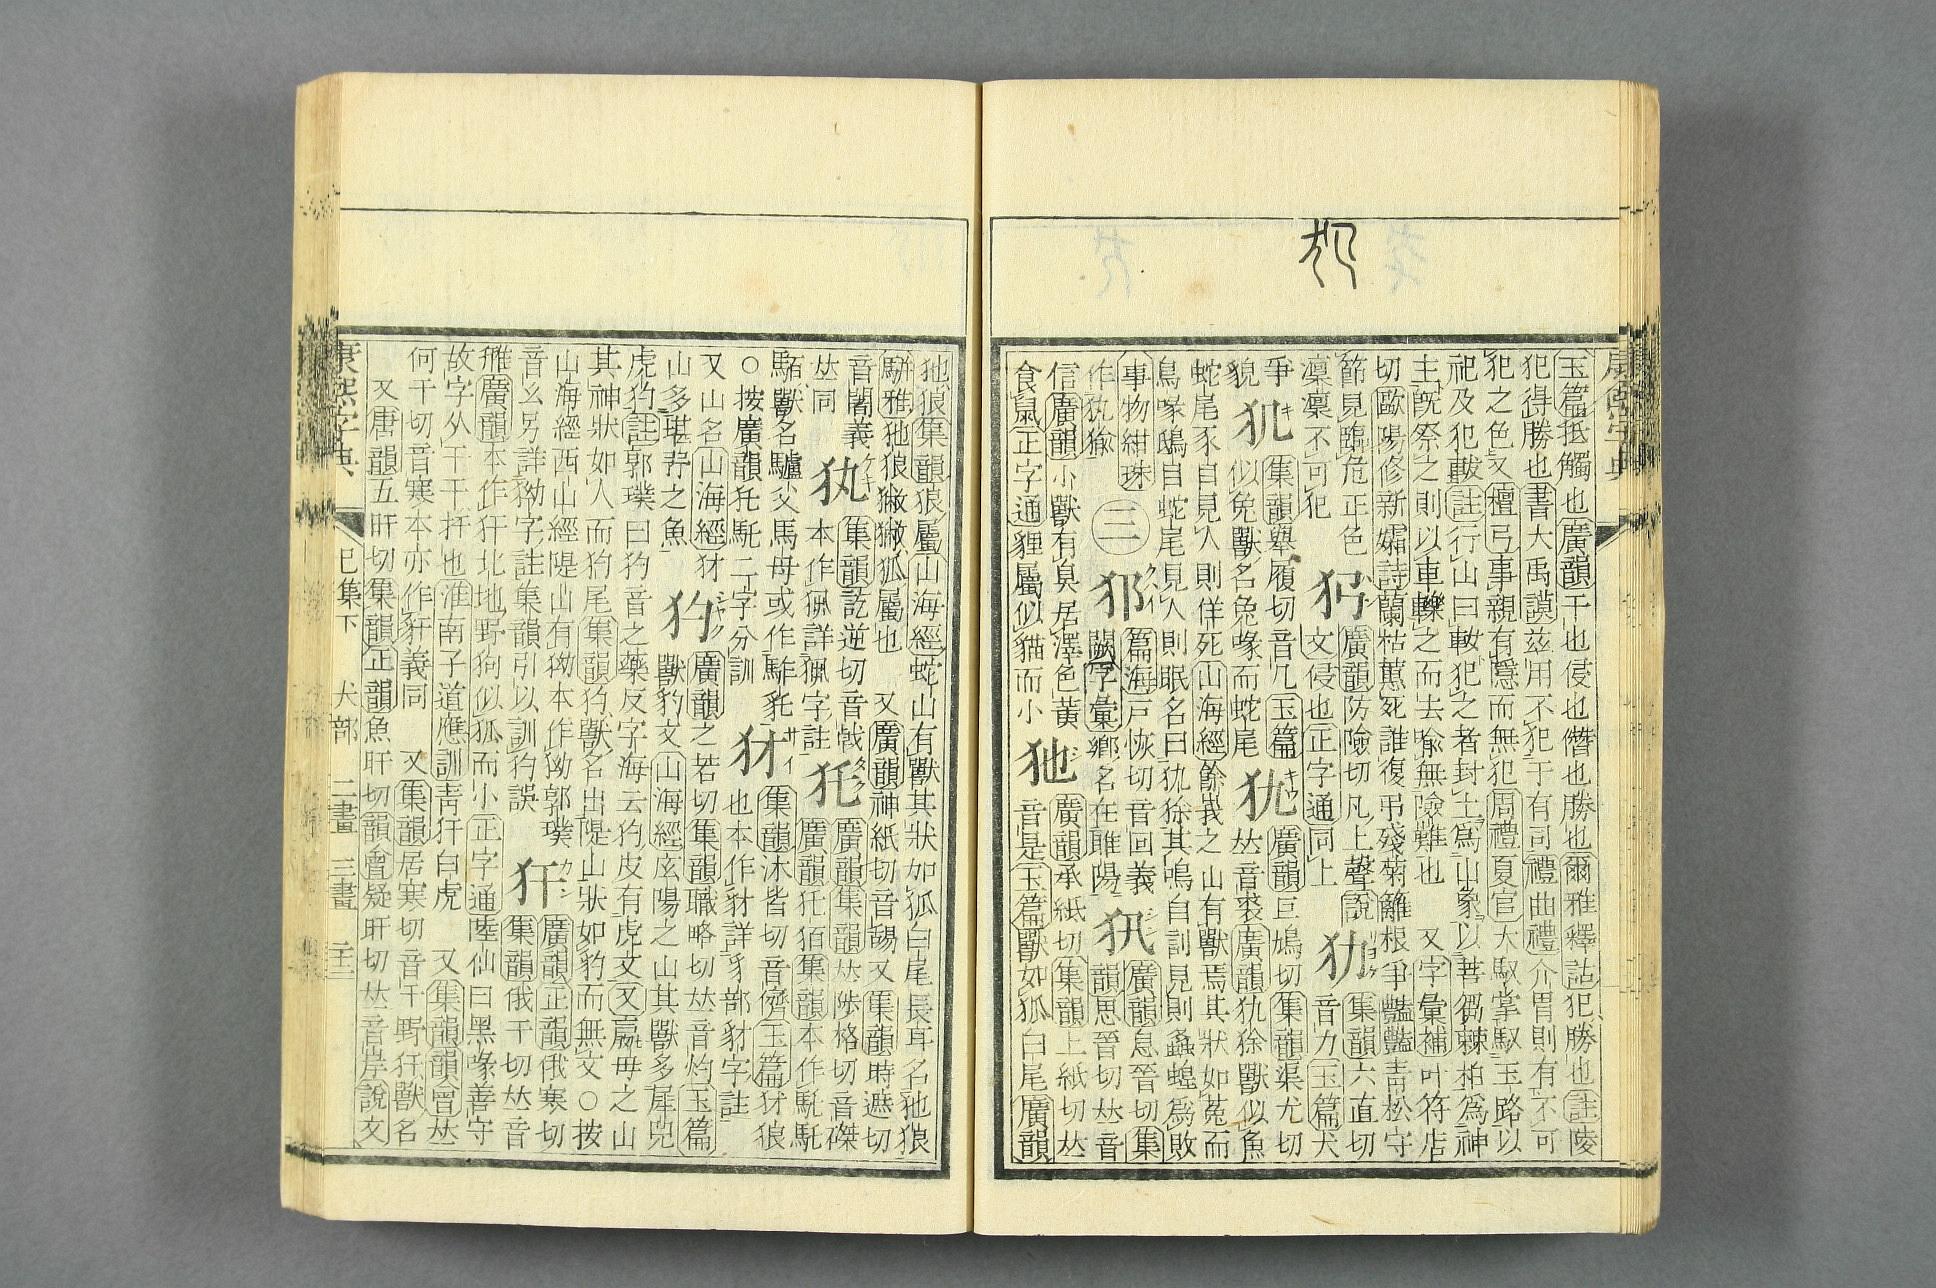 犯
康熙字典
玉篇抵觸也廣韻干也侵也僭也勝也爾雅釋詁犯勝也註陵
犯得勝也書大禹謨茲用不犯于有司禮曲禮介冑則有不可
犯之色又檀弓事親有隱而無犯周禮夏官大馭掌馭玉路以
祀及犯軷註行山曰軷犯之者封土爲山象以菩芻棘柏爲神
主旣祭之則以車轢之而去喻無險難也 又字彙補叶符店
切歐陽修新霜詩蘭枯蕙死誰復弔殘菊籬根爭豔豔靑松守
節見臨危正色
凛凛不可犯
廣韻防險切凡上聲說
文侵也正字通同上
集韻六直切
音力玉篇犬
爭
貌
犰
集韻舉履切音几玉篇
似兔獸名兔喙而蛇尾
犰
廣韻巨鳩切集韻渠尤切
𠀤音裘廣韻犰狳獸似魚
蛇尾豕目見人則佯死山海經餘峩之山有獸焉其狀如菟而
鳥喙鴟目蛇尾見人則眠名曰犰狳其鳴自訓見則螽蝗爲敗
事物紺珠
作犰㺄
三
篇海戸恢切音回義
闕字彙鄉名在睢陽
犼
廣韻息晉切集
韻思晉切𠀤音
信廣韻小獸有臭居澤色黃
食鼠正字通貍屬似貓而小
㹝
廣韻承紙切集韻上紙切𠀤
音是玉篇獸如狐白尾廣韻
㹝狼集韻狼屬山海經蛇山有獸其狀如狐白尾長耳名㹝狼
駢雅㹝狼獙獙狐屬也 又廣韻神紙切音舓又集韻時遮切
音闍義
𠀤同
集韻訖逆切音戟
本作㹟詳㹟字註
犵
廣韻集韻𠀤陟格切音磔
廣韻犵狛集韻本作馲馲
駏獸名驢父馬母或作馲
○按廣韻犵馲二字分訓
犲
集韻沐皆切音儕玉篇犲狼
也本作豺詳豸部豺字註
又山名山海經犲
山多堪㐨之魚
犳
廣韻之若切集韻職略切𠀤音灼玉篇
獸豹文山海經底陽之山其獸多犀兕
虎犳註郭璞曰犳音之藥反字海云犳皮有虎文又嬴母之山
其神狀如人而犳尾集韻犳獸名出隄山狀如豹而無文○按
山海經西山經隄山有㺃本作㺃郭璞
音幺另詳㺃字註集韻引以訓犳誤
犴
廣韻正韻俄寒切
集韻俄干切𠀤音
雃廣韻本作犴北地野狗似狐而小正字通陸佃曰黑喙善守
故字从干干扞也淮南子道應訓靑犴白虎 又集韻韻會𠀤
何干切音寒本亦作豻義同 又集韻居寒切音干野犴獸名
又唐韻五旰切集韻正韻魚旰切韻會疑旰切𠀤音岸說文
康熙字典 巳集下 犬部 二畫 三畫